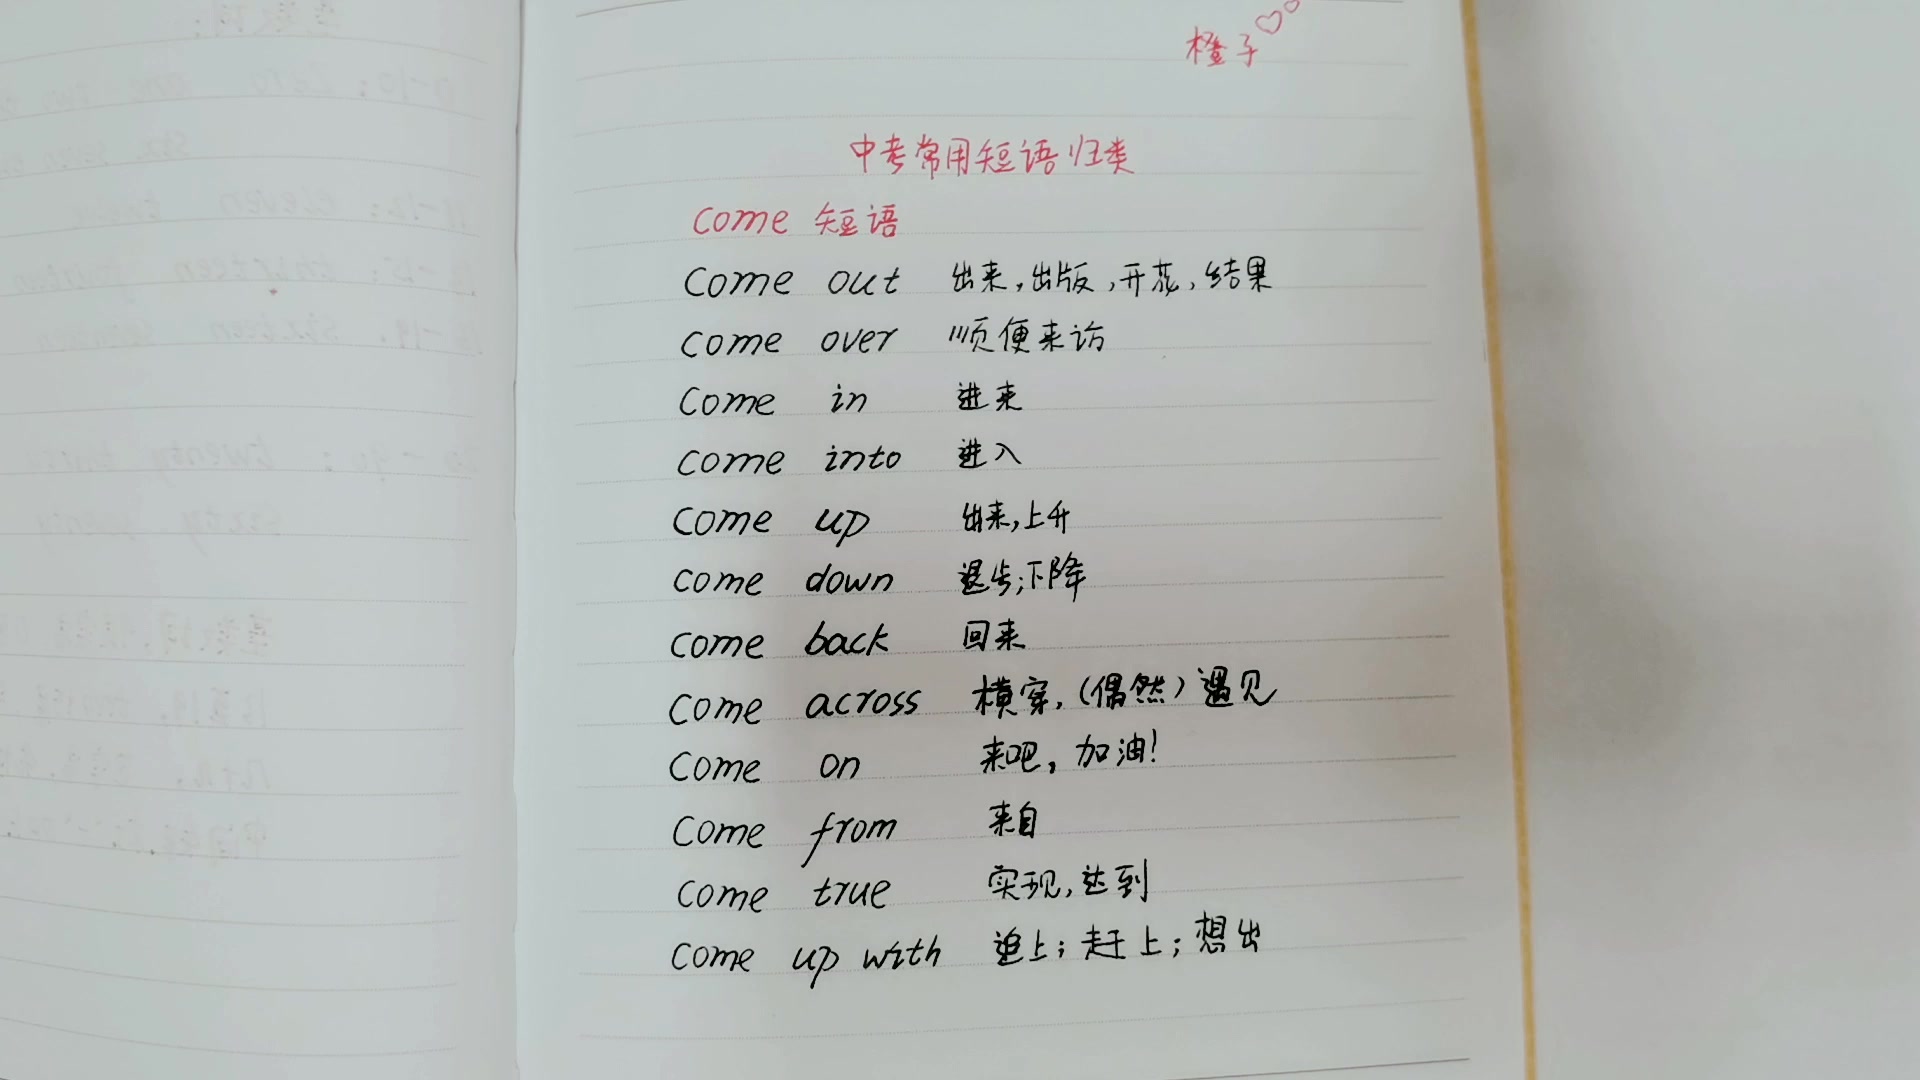 橙子
中考常用短语归类
Come 短语
Come out 出来,出版,开花,结果
Come over 顺便来访
Come in 进来
Come into 进入
Come up 出来,上升
Come down 退步;下降
Come back 回来
Come across 横穿,(偶然)遇见
Come on 来吧,加油!
Come from 来自
Come true 实现,达到
Come up with 追上;赶上;想出